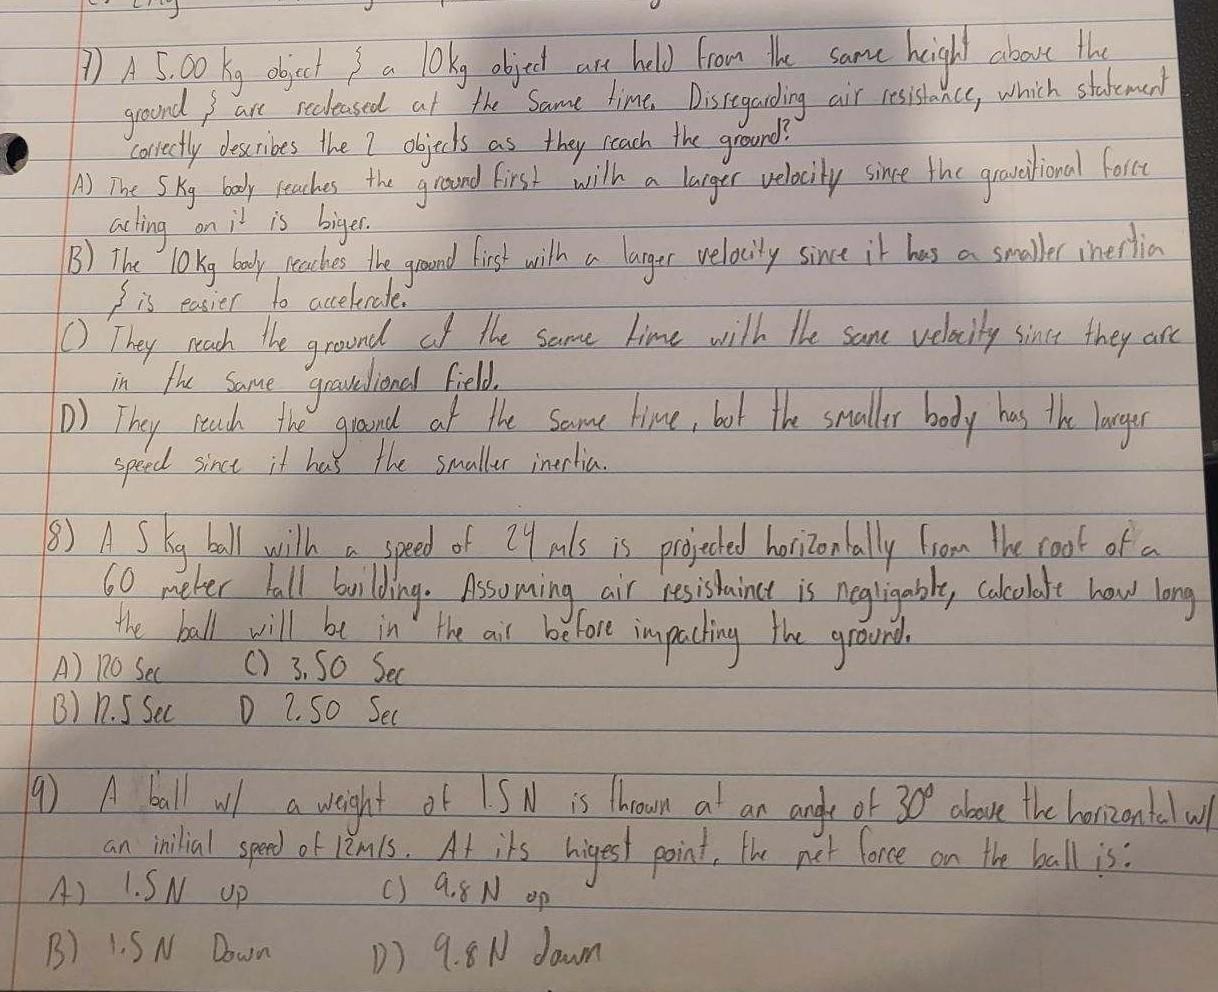 7) A 5.00 Kg object & a 10kg object are held from the same height above the
ground & are recleased at the same time. Disregarding air resistance, which statement
correctly describes the 2 objects as they reach the ground?
A) The 5Kg body reaches the ground first with a larger velocity since the graveitional force
acting on it is biger.
B) The 10kg body reaches the ground first with a larger velocity since it has a smaller inertia
& is easier to accelerate.
C) They reach the ground at the same time with the same velocity since they are
in the same gravetional field.
D) They reach the ground at the same time, but the smaller body has the larger
speed since it has the smaller inertia.
8) A 5 kg ball with a speed of 24 m/s is projected horizontally from the roof of a
60 meter tall building. Assuming air resistaince is negligable, calculate how long
the ball will be in the air before impacting the ground.
A) 120 Sec C) 3.50 Sec
B) 12.5 Sec D 2.50 Sec
9) A ball w/ a weight of 1.5N is thrown at an angle of 30° above the horizontal w/
an initial speed of 12m/s. At its higest point, the net force on the ball is:
A) 1.5N up C) 9.8 N up
B) 1.5N Down D) 9.8N down